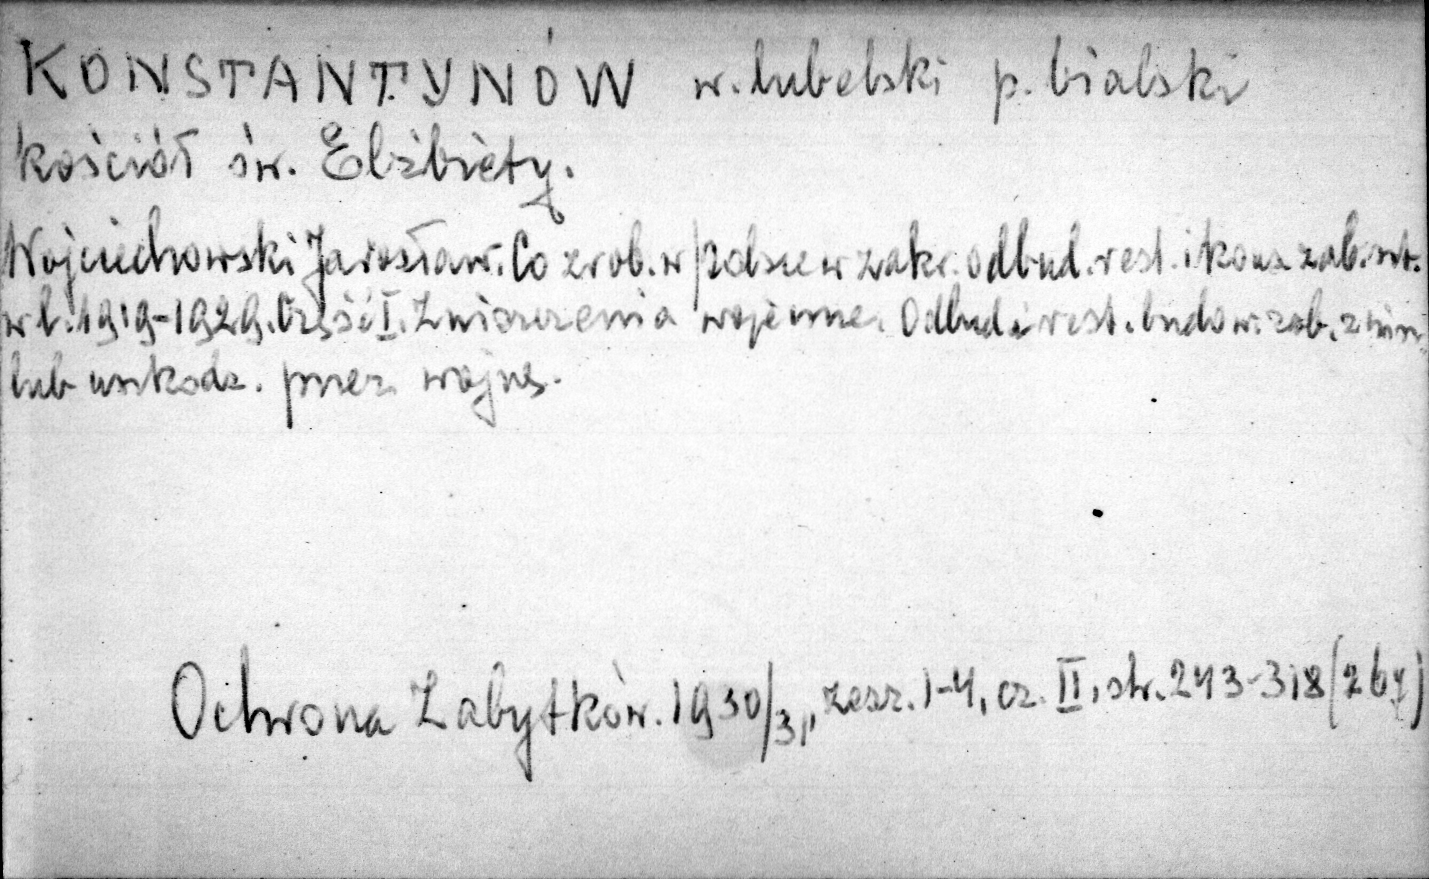 KONSTANTYNÓW w. lubelski p. bialski
kościół św. Elżbiety.
Wojciechowski Jarosław. Co zrob. w Polsce w zakr. odbud. rest. i kons. zab. szt.
w l. 1919-1929. Część I. Zniszczenia wojenne. Odbud. i rest. budow. zab. zniszcz.
lub uszkodz. przez wojnę.
Ochrona Zabytków. 1930/31, zesz. 1-4, cz. II, str. 243-318 (267)